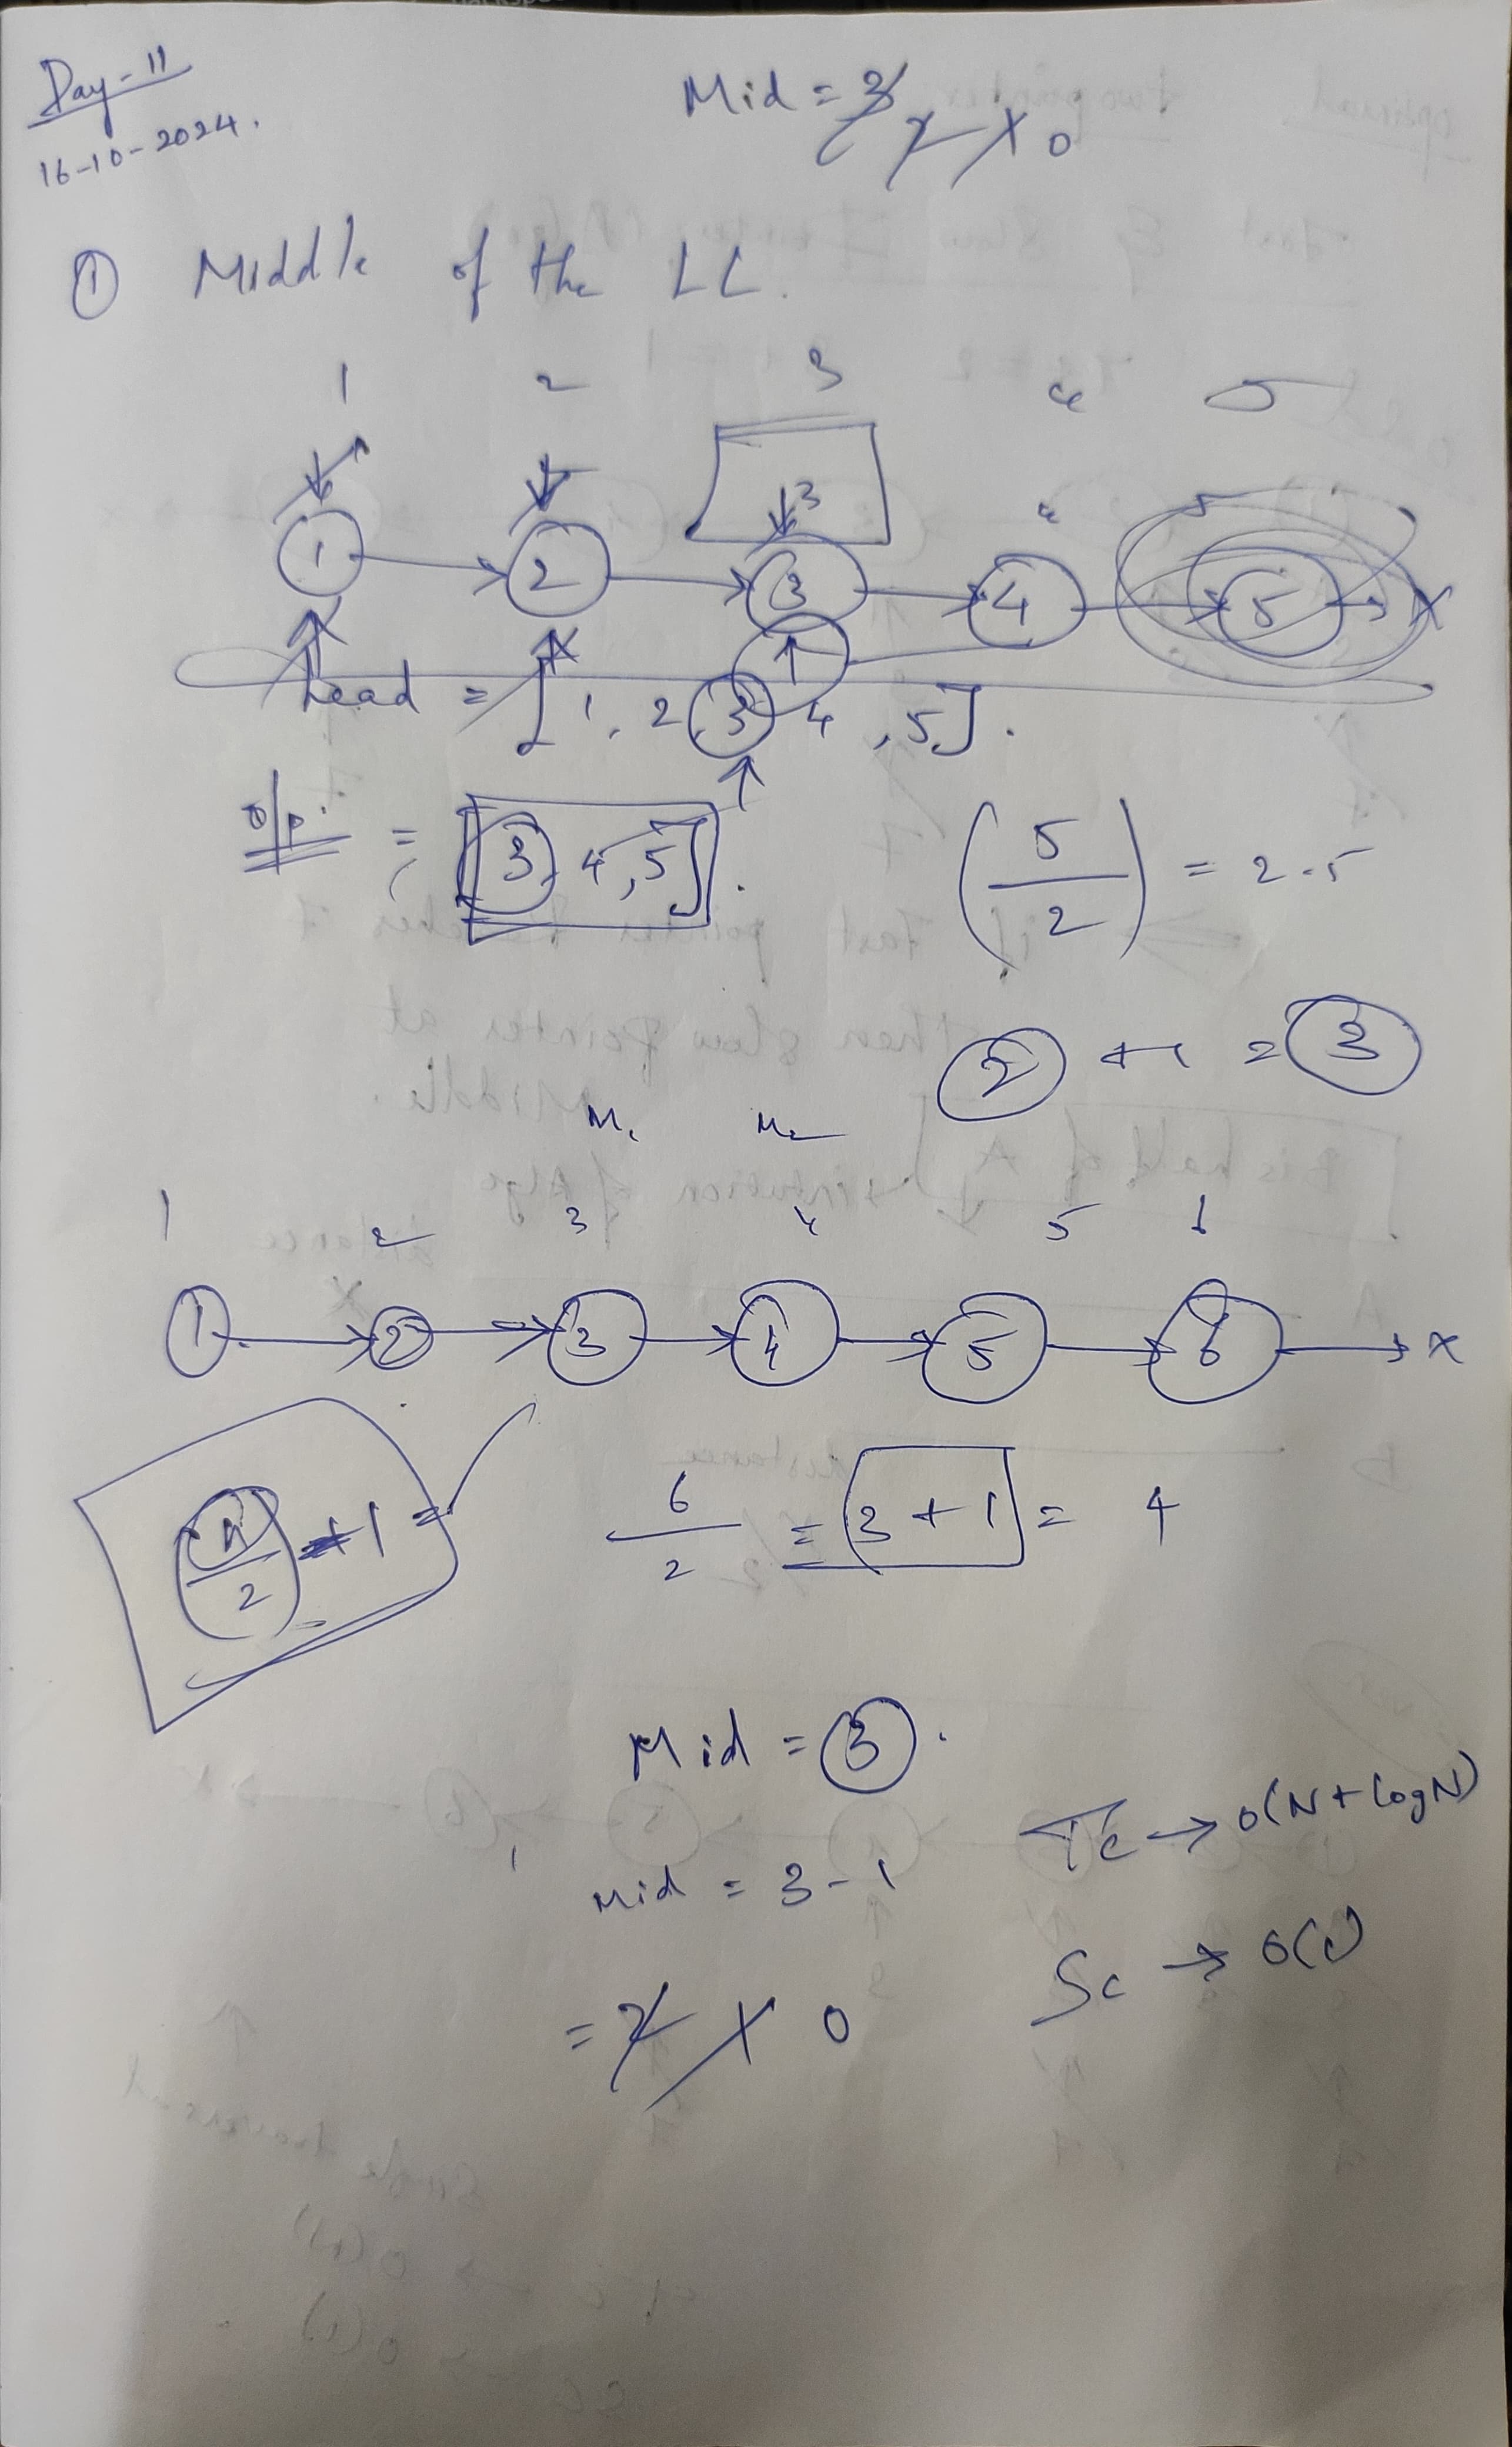 Day-11
16-10-2024.
Mid = 3 2 1 0
① Middle of the LL.
1 2 3 4 5
3 4 5
1 → 2 → 3 → 4 → 5 → x
head = [1, 2, 3, 4, 5].
o/p. = [3, 4, 5].
(5/2) = 2.5
2 + 1 = 3
M1 M2
1 2 3 4 5 6
1 → 2 → 3 → 4 → 5 → 6 → x
(n/2) + 1 =
6/2 = 3 + 1 = 4
Mid = 3.
Mid = 3 - 1
= 2 1 0
Tc → O(N + logN)
Sc → O(1)